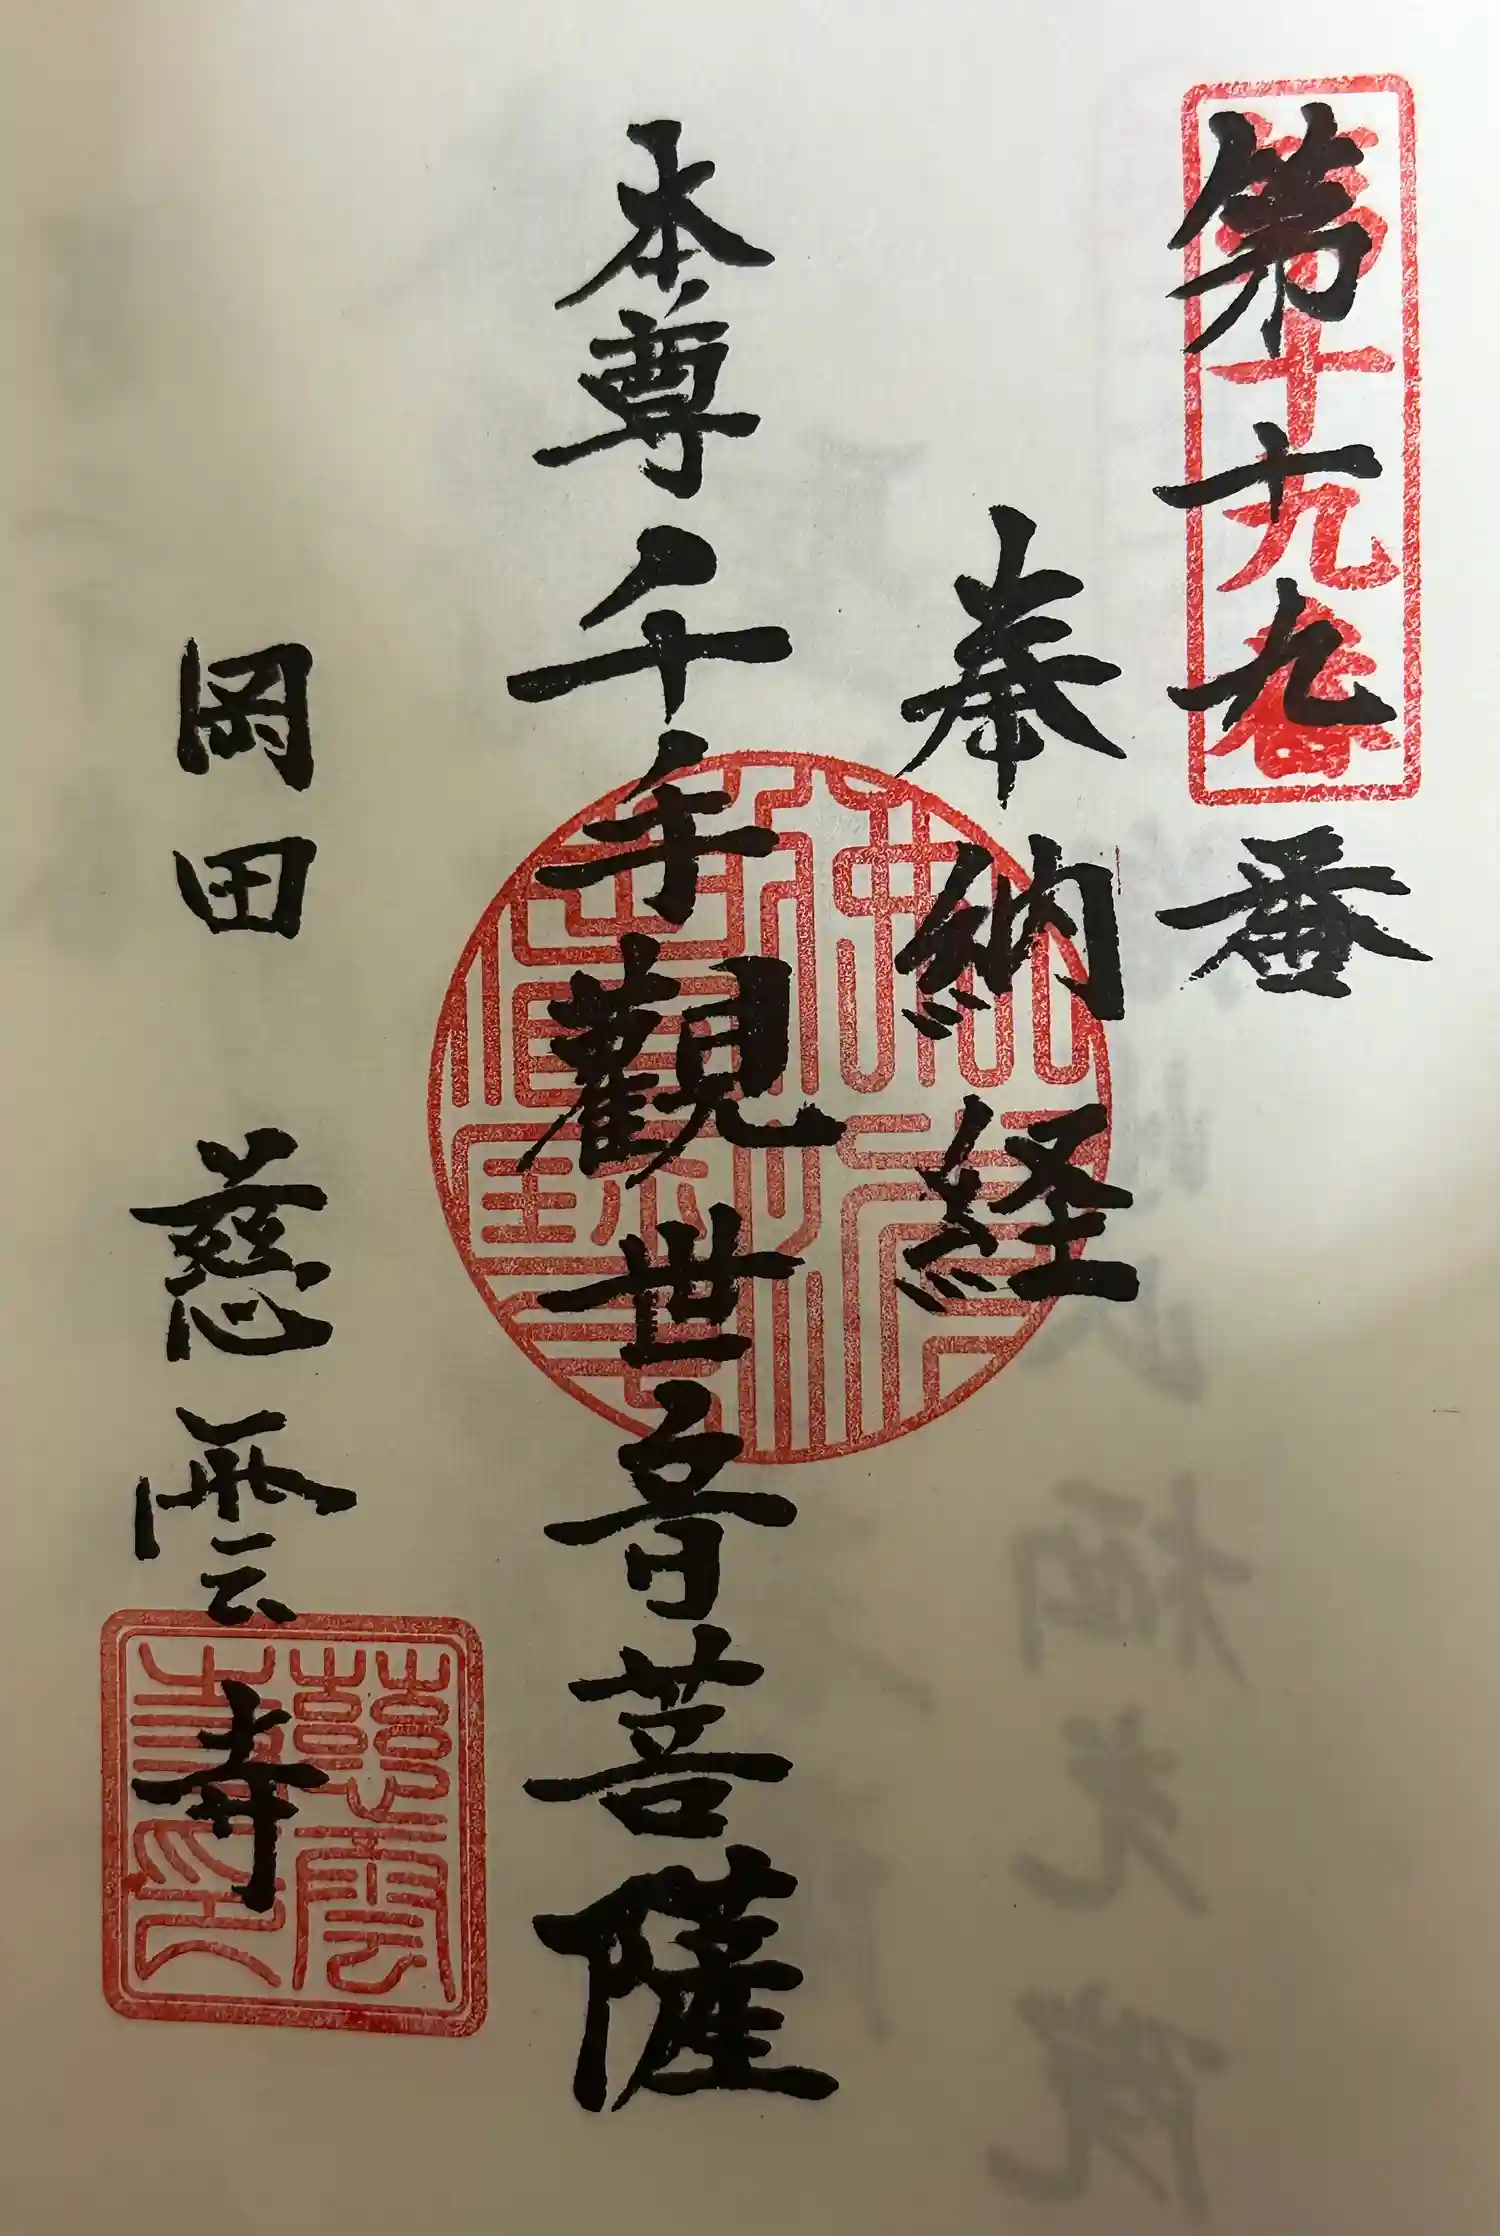 第十九番
第十九番
奉納経
本尊千手觀世音菩薩
岡田 慈雲寺
慈雲寺印